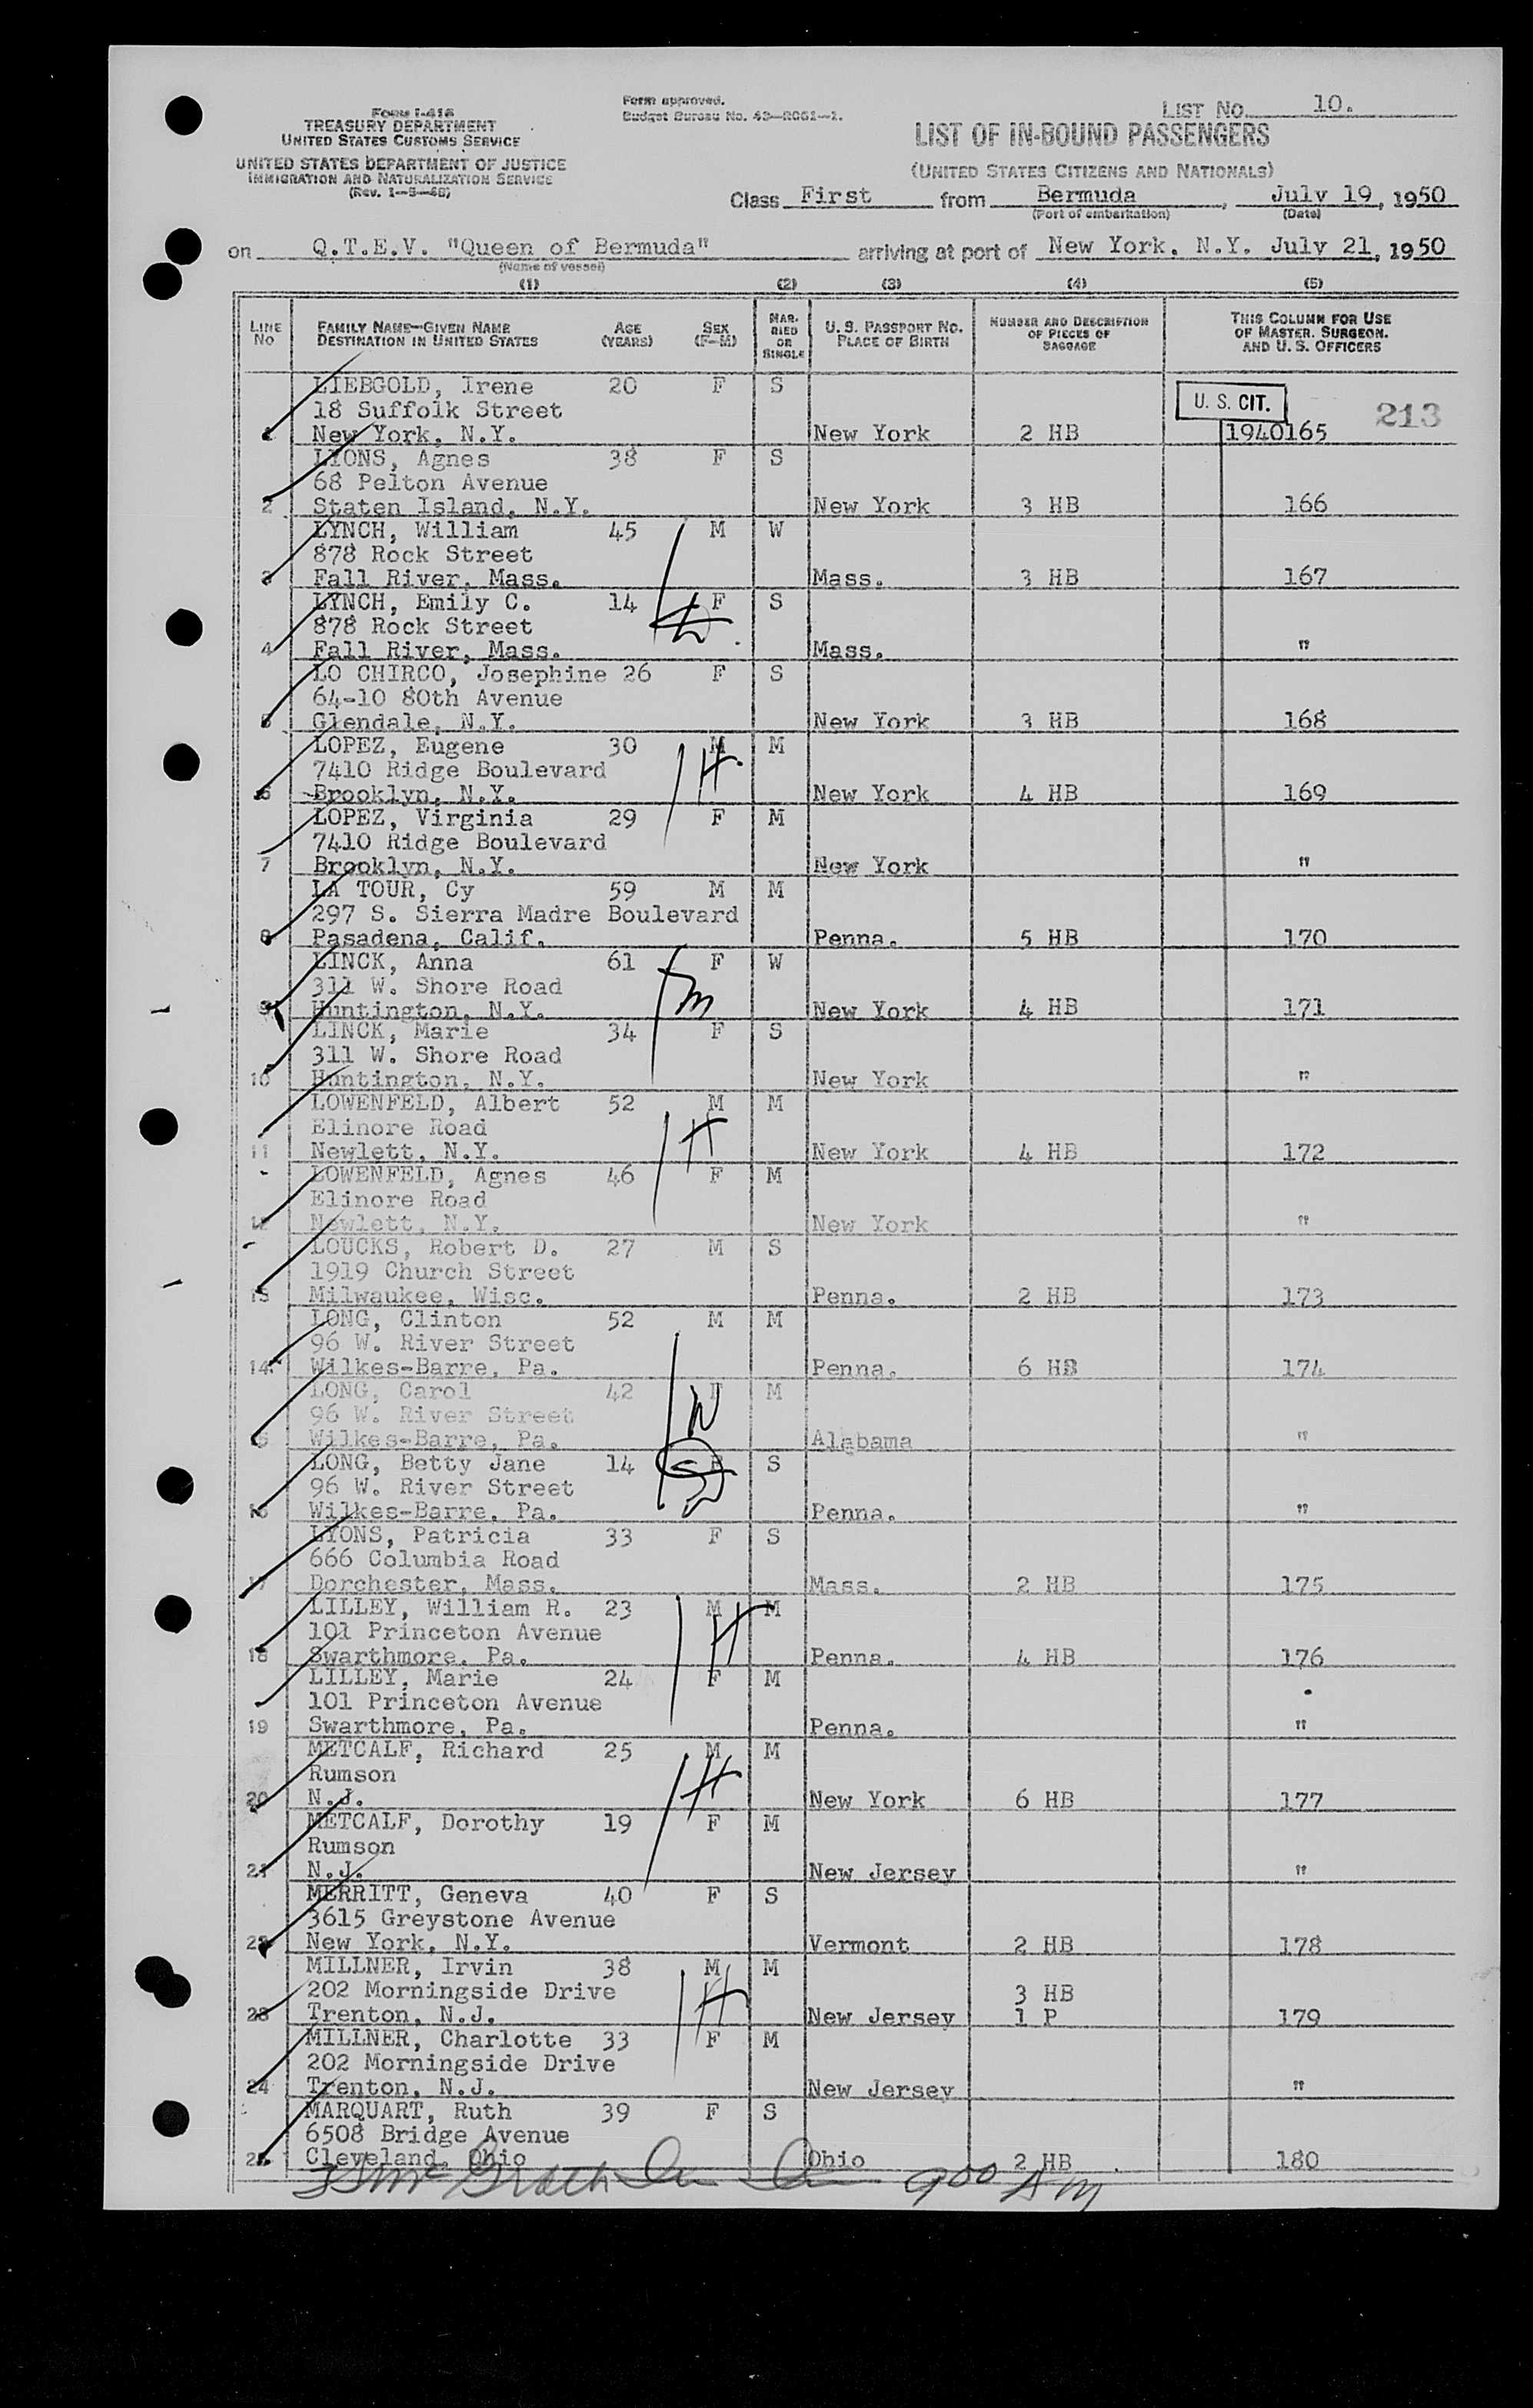 Form I-416
TREASURY DEPARTMENT
UNITED STATES CUSTOMS SERVICE
UNITED STATES DEPARTMENT OF JUSTICE
IMMIGRATION AND NATURALIZATION SERVICE
(Rev. 1-5-48)
Form approved.
Budget Bureau No. 43-R061-1.
LIST NO. 10.
LIST OF IN-BOUND PASSENGERS
(UNITED STATES CITIZENS AND NATIONALS)
Class First from Bermuda, July 19, 1950
(Port of embarkation) (Date)
on Q.T.E.V. "Queen of Bermuda" arriving at port of New York, N.Y. July 21, 1950
(Name of vessel)
(1) (2) (3) (4) (5)
LINE No FAMILY NAME-GIVEN NAME DESTINATION IN UNITED STATES AGE (YEARS) SEX (F-M) MARRIED OR SINGLE U. S. PASSPORT NO. PLACE OF BIRTH NUMBER AND DESCRIPTION OF PIECES OF BAGGAGE THIS COLUMN FOR USE OF MASTER, SURGEON, AND U. S. OFFICERS
LIEBGOLD, Irene 20 F S U. S. CIT. 213
18 Suffolk Street
1 New York, N.Y. New York 2 HB 1940165
LYONS, Agnes 38 F S
68 Pelton Avenue
2 Staten Island, N.Y. New York 3 HB 166
LYNCH, William 45 M W
878 Rock Street
3 Fall River, Mass. Mass. 3 HB 167
LYNCH, Emily C. 14 F S
878 Rock Street
4 Fall River, Mass. Mass. "
LO CHIRCO, Josephine 26 F S
64-10 80th Avenue
5 Glendale, N.Y. New York 3 HB 168
LOPEZ, Eugene 30 M M
7410 Ridge Boulevard
6 Brooklyn, N.Y. New York 4 HB 169
LOPEZ, Virginia 29 F M
7410 Ridge Boulevard
7 Brooklyn, N.Y. New York "
LA TOUR, Cy 59 M M
297 S. Sierra Madre Boulevard
8 Pasadena, Calif. Penna. 5 HB 170
LINCK, Anna 61 F W
311 W. Shore Road
9 Huntington, N.Y. New York 4 HB 171
LINCK, Marie 34 F S
311 W. Shore Road
10 Huntington, N.Y. New York "
LOWENFELD, Albert 52 M M
Elinore Road
11 Newlett, N.Y. New York 4 HB 172
LOWENFELD, Agnes 46 F M
Elinore Road
12 Newlett, N.Y. New York "
LOUCKS, Robert D. 27 M S
1919 Church Street
13 Milwaukee, Wisc. Penna. 2 HB 173
LONG, Clinton 52 M M
96 W. River Street
14 Wilkes-Barre, Pa. Penna. 6 HB 174
LONG, Carol 42 F M
96 W. River Street
15 Wilkes-Barre, Pa. Alabama "
LONG, Betty Jane 14 F S
96 W. River Street
16 Wilkes-Barre, Pa. Penna. "
LYONS, Patricia 33 F S
666 Columbia Road
17 Dorchester, Mass. Mass. 2 HB 175
LILLEY, William R. 23 M M
101 Princeton Avenue
18 Swarthmore, Pa. Penna. 4 HB 176
LILLEY, Marie 24 F M
101 Princeton Avenue
19 Swarthmore, Pa. Penna. "
METCALF, Richard 25 M M
Rumson
20 N.J. New York 6 HB 177
METCALF, Dorothy 19 F M
Rumson
21 N.J. New Jersey "
MERRITT, Geneva 40 F S
3615 Greystone Avenue
22 New York, N.Y. Vermont 2 HB 178
MILLNER, Irvin 38 M M
202 Morningside Drive 3 HB
23 Trenton, N.J. New Jersey 1 P 179
MILLNER, Charlotte 33 F M
202 Morningside Drive
24 Trenton, N.J. New Jersey "
MARQUART, Ruth 39 F S
6508 Bridge Avenue
25 Cleveland, Ohio Ohio 2 HB 180
McGrath 900 AM